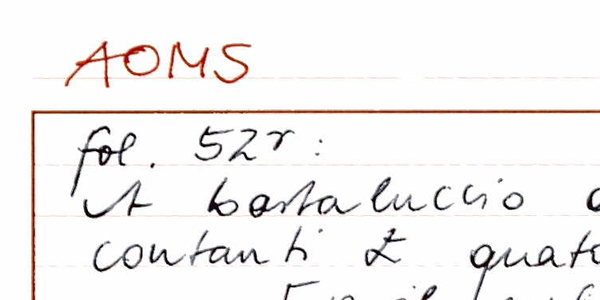 AOMS
fol. 52r:
A bartaluccio
contanti £